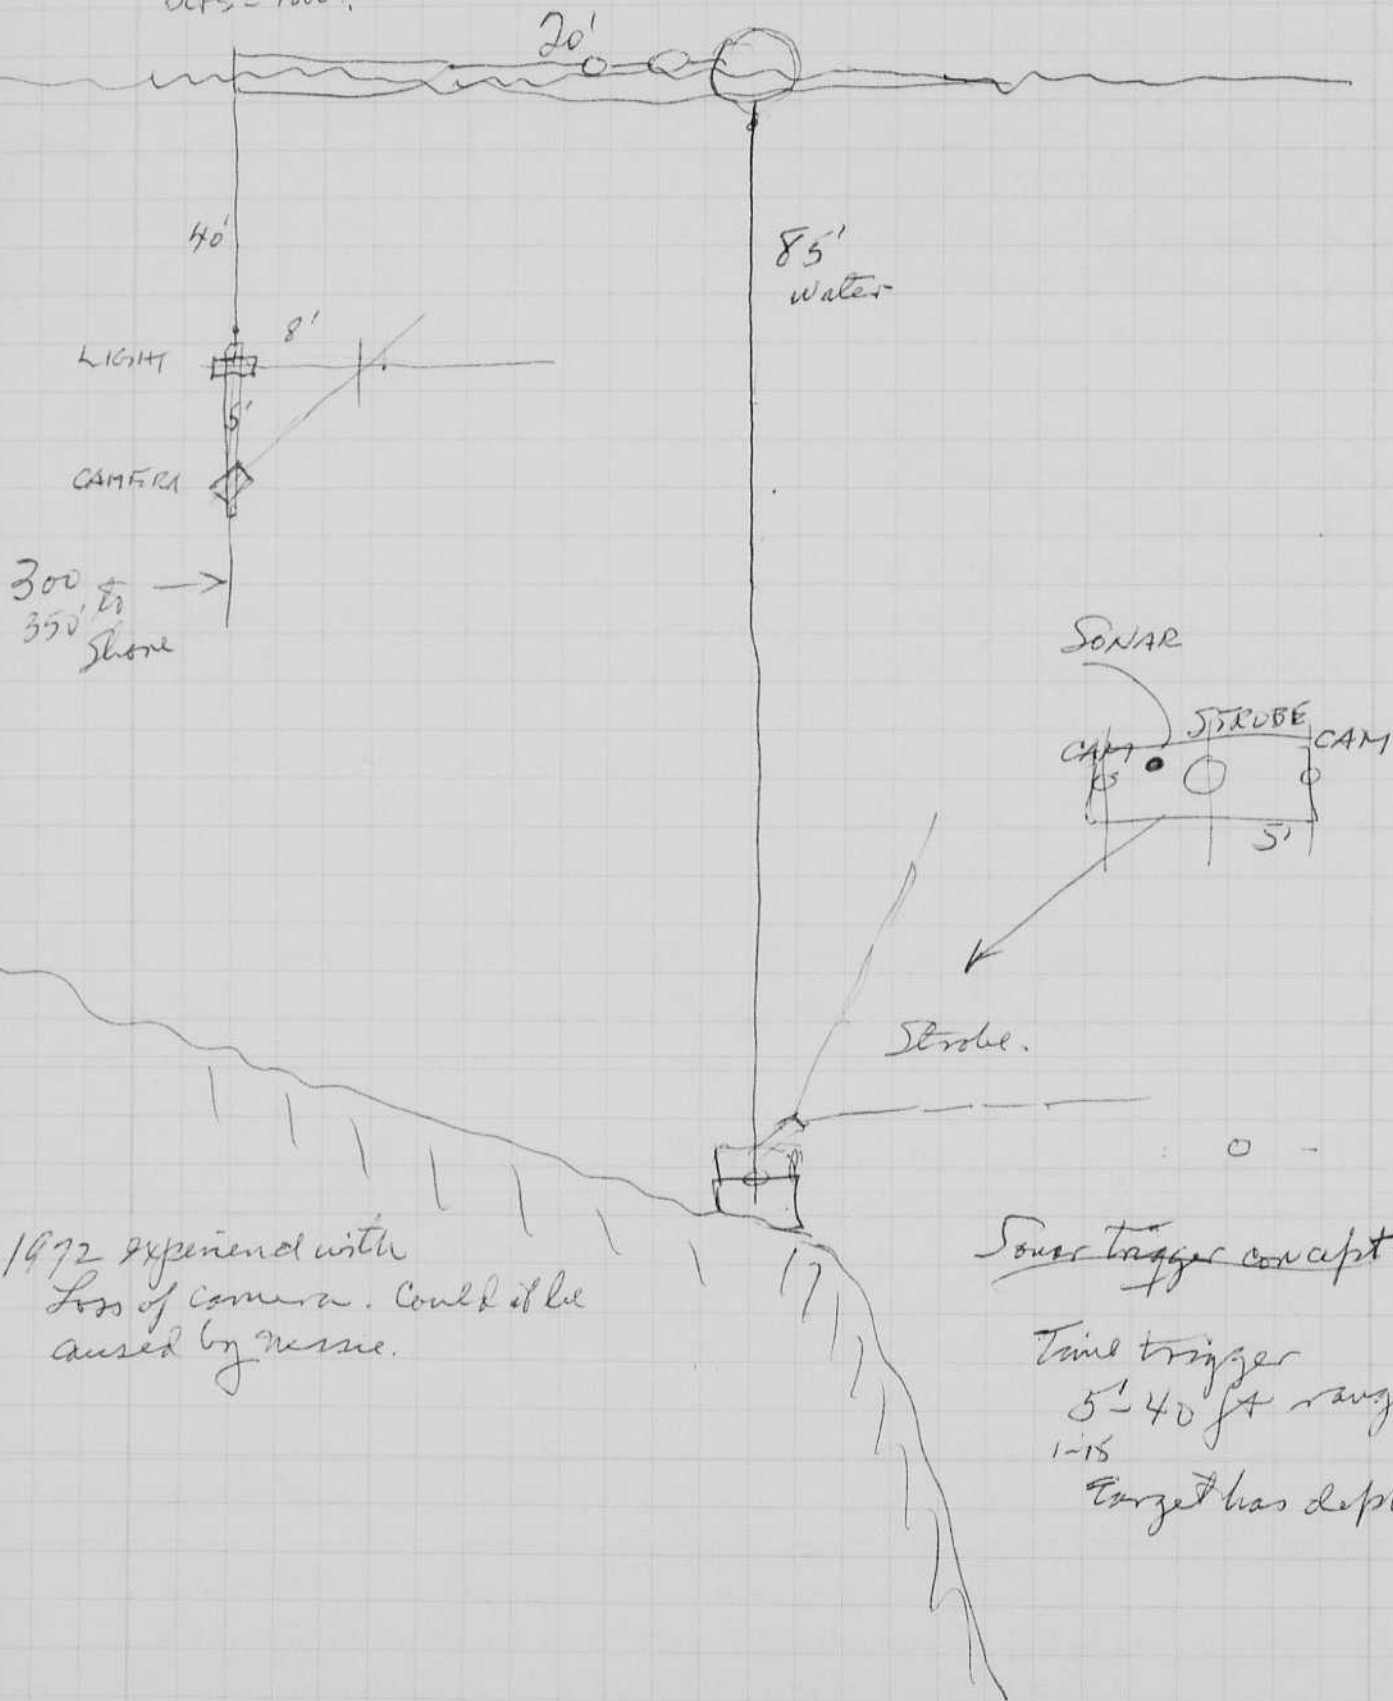 20'
40'
85'
water
8'
LIGHT
5'
CAMERA
300 to
350'
Shore
SONAR
STROBE
CAM
CAM
5'
Strobe.
1972 experiend with
Loss of camera. Could it be
caused by nessie.
Sonar trigger concept
Time trigger
5'-40 ft rang
1-15
Target has dept